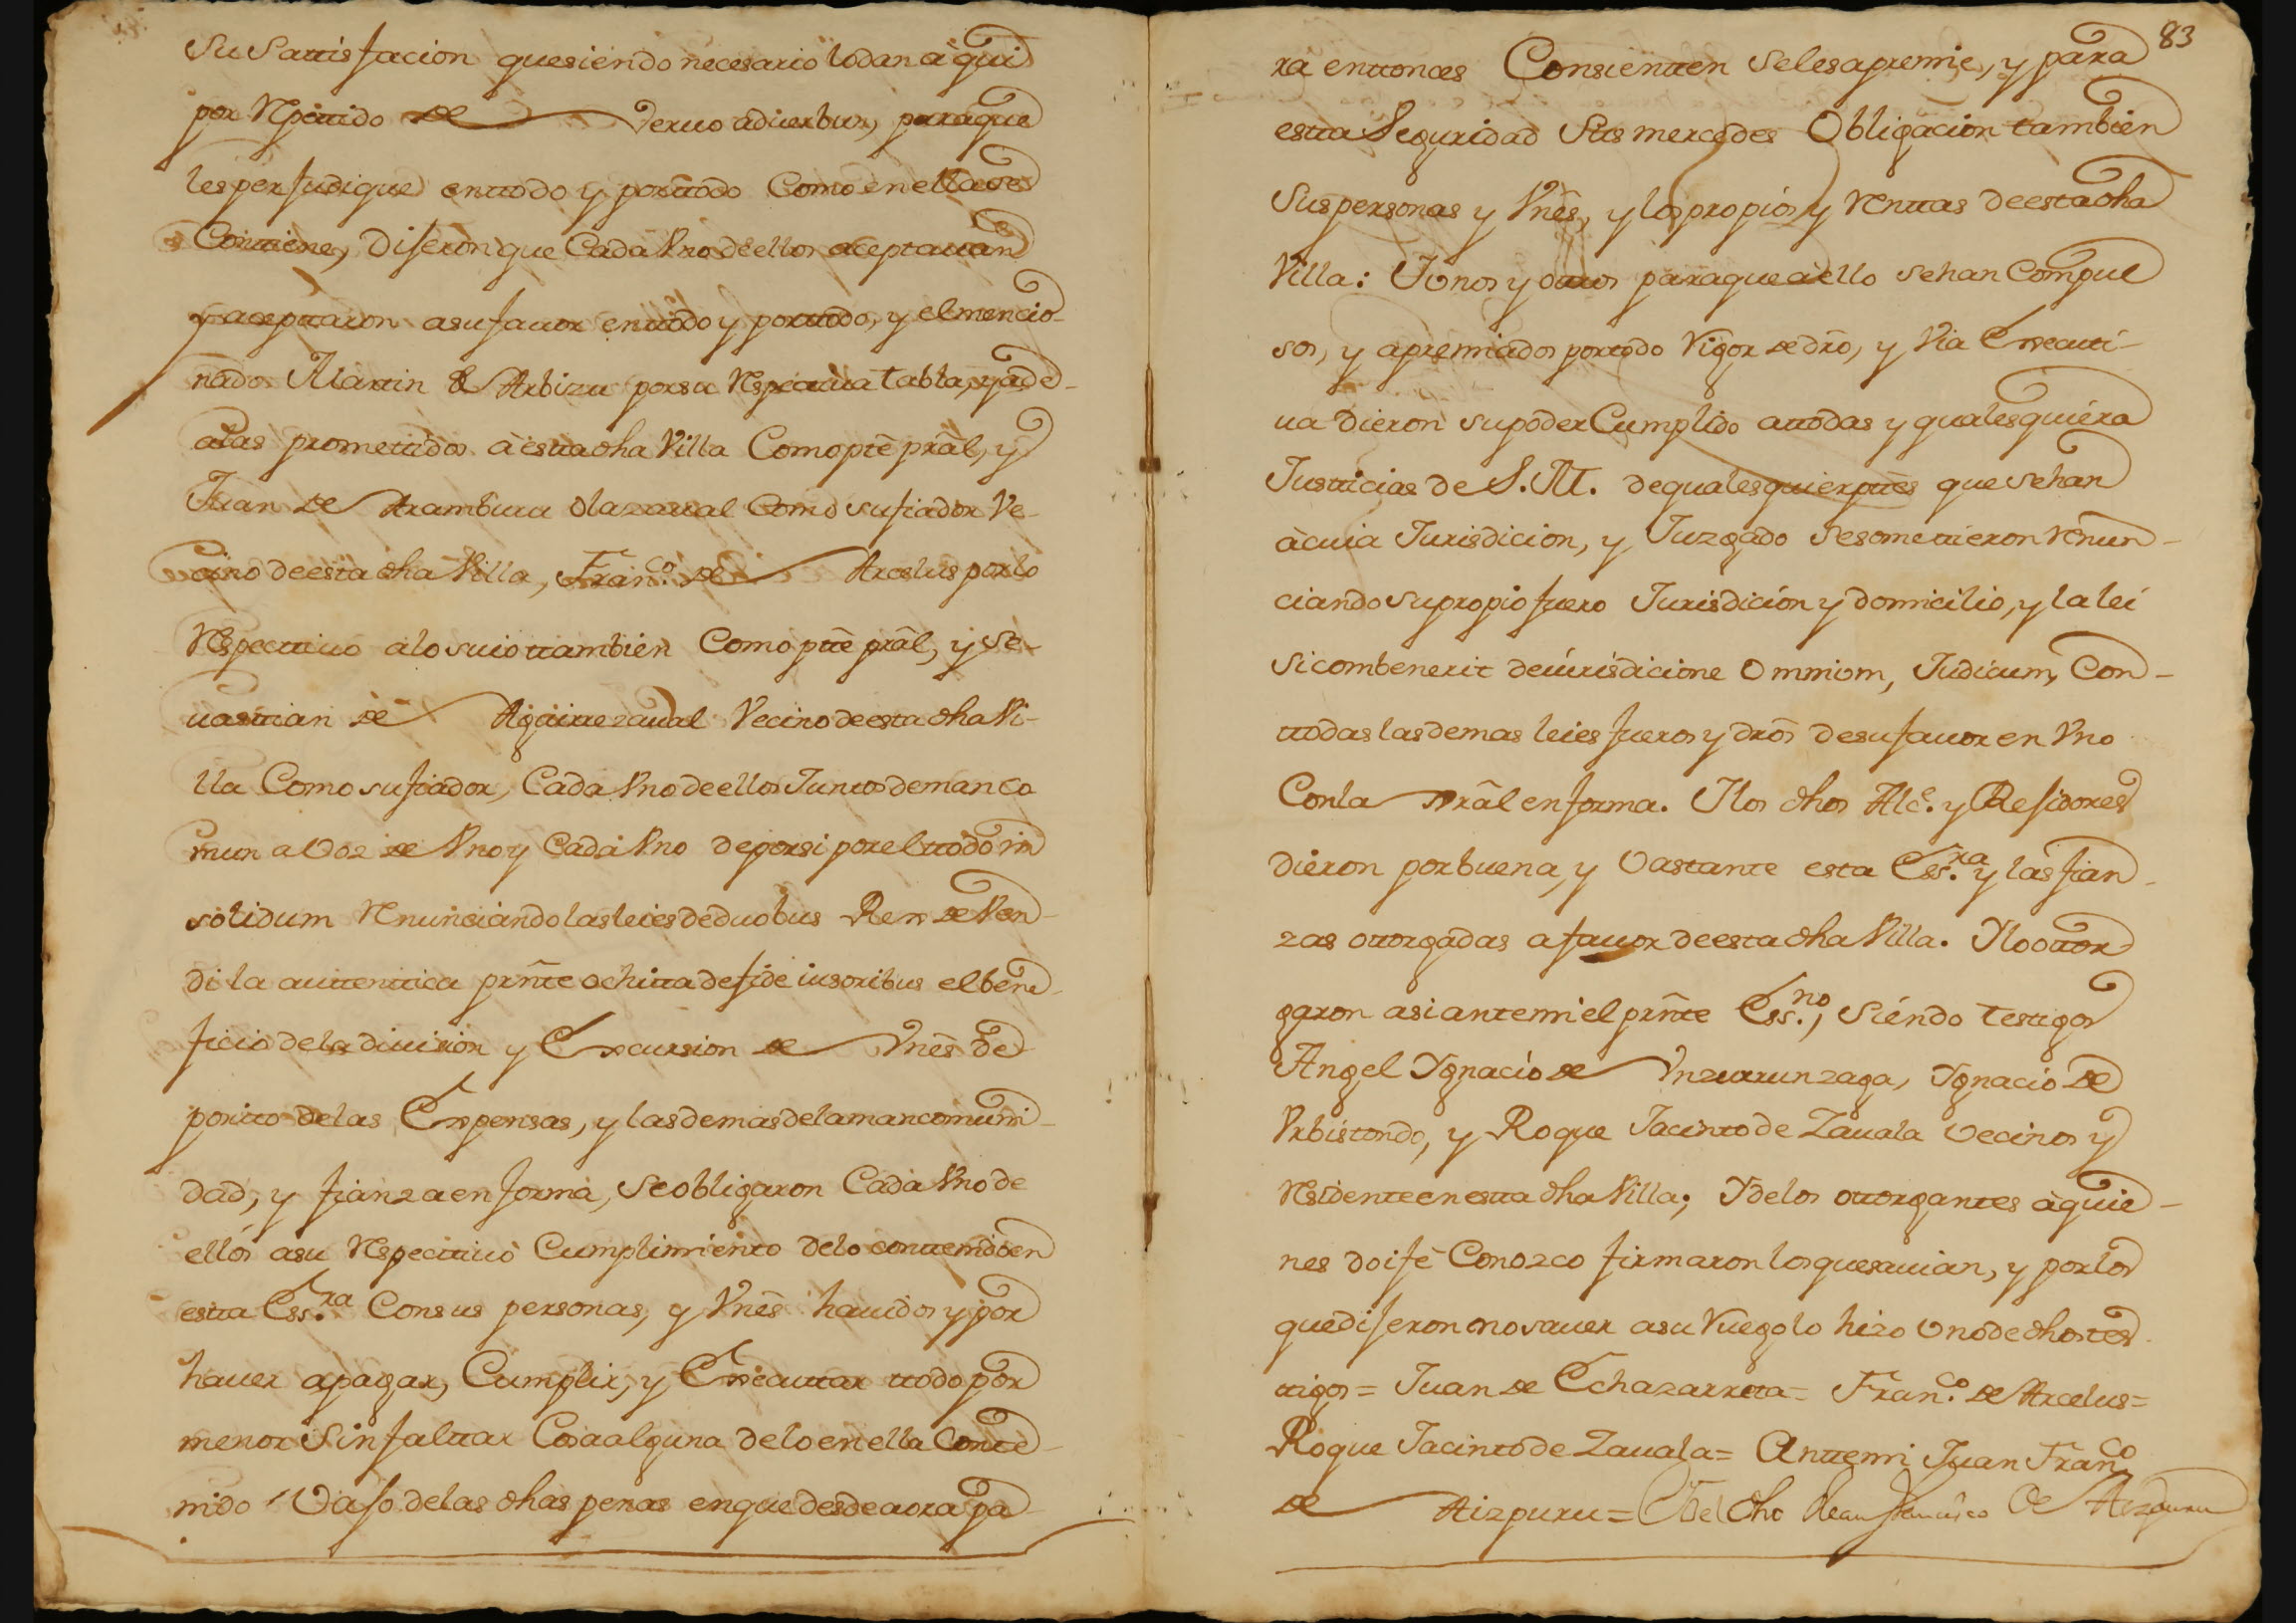 Su Sattisfacion quesiendo necesario lodan aqui
por Repittido de Veruo adverbun, paraque
lesperJudique enttodo y porttodo Como enellase
Conttiene, Diseron que Cada Vno deellos aceptauan
y aceptaron asufauor enttodo y porttodo, y elmencio-
nado Martin de Arbizu porsu Respectiua tabla, y ade-
alas promettidos à esttadha Villa Comoptê prâl, y
Juan de Aramburu Olazaual Como sufiador Ve-
cino deesta dha Villa, Fran.co de Arcelus porlo
Respecttiuo alo suio ttambien Como pttê prâl, y Se-
uasttian de Agairrezaual Vecino deesta dha Vi-
lla Como sufiador, Cada Vno deellos Juntos demanco
mun aVoz de Vno y Cada Vno deporsi porelttodo in
solidum Renunciando lasleies deduobus Rex de Ven-
di la auttenttica prn̂te ochitta defide iusoribus elbene-
ficio dela diuision y Excursion de Vnês de
positto delas Expensas, y lasdemas delamancomuni-
dad, y fianza en forma, Seobligaron Cada Vno de
ellos asu Respecttiuo Cumplimiento delo conttenido en
estta Ess.ra Consus personas, y Vnês hauidos y por
hauer apagar, Cumplir, y Executtar ttodo por
menor Sin falttar Cosa alguna delo enella Contte-
nido Vaso delas dhas penas enque desde aora pa
83
ra enttonces Consientten Selesapremie, y para
estta Seguridad Sus mercedes Obligacion tambien
Suspersonas y Vnês, y los propios y Renttas deesta dha
Villa: Vnos y ottros paraque aello sehan Compul
sos, y apremiados porttodo Vigor de drô, y Via Executi-
ua Dieron supoder Cumplido attodas y qualesquiera
Justticias de S.M. dequalesquier pttês que sehan
àcuia Jurisdicion, y Juzgado Sesomettieron Renun-
ciando supropio fuero Jurisdicion y domicilio, y la lei
Sicombenerit deiurisdicione Omniom, Judicum, Con-
ttodas lasdemas leies fueros y drôs desufauor en Vno
Conla Grâl enforma. Ylos dhos Alc.e y Residores
dieron porbuena, y Vastante esta Ess.ra y las fian-
zas ottorgadas afauor deesta dha Villa. Ylo ottor-
garon asi antemi el prn̂te Ess.no, Siendo Testigos
Angel Ygnacio de Vnzurrunzaga, Ygnacio de
Vrbistondo, y Roque Jacinto de Zauala Vecinos y
Residentteen estta dha Villa; Ydelos ottorgantes àquie-
nes doifè Conozco firmaron losquesauian, y porlos
quediseron nosauer asu Ruegolo hizo Vno de dhos tes-
ttigos = Juan de Echazarreta = Fran.co de Arcelus =
Roque Jacinto de Zauala = Anttemi Juan Fran.co
de Aizpuru = Juan francisco de Aizpuru